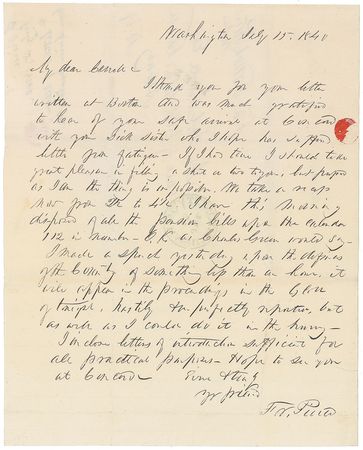 Washington July 15. 1840
My dear
I thank you for your letter
written at Boston and was much gratified
to hear of your safe arrival at Concord
with your sick sister who I hope has suffered
little from fatigue - If I had time I should take
great pleasure in filling a sheet or two to you, but pressed
as I am the thing is impossible. We take a recess
now from 2½ to 4 & I have this morning
disposed of all the pension bills upon the calendar
112 in number - O.K. as Charles Green would say -
I made a speech yesterday upon the
of the County of something less than an hour, it
will appear in the proceedings in the Globe
of tonight, hastily & imperfectly reported, but
as well as I could do it in the hurry -
I inclose letters of introduction sufficient for
all practical purposes - Hope to see you
at Concord
Ever & truly
yr friend
F. Pierce